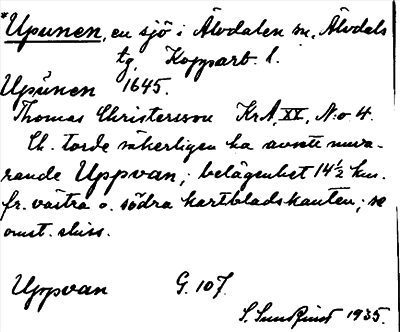 *Upunen, en sjö i Älvdalen sn, Älvdals
tg, Kopparb. l.
Upünen 1645.
Thomas Christersson KrA, XX, N:o 4.
Ch. torde säkerligen ha avsett nuva-
rande Uppvan; belägenhet 14½ km.
fr. västra o. södra kartbladskanten; se
omst. skiss.
Uppvan G. 107.
S. Sundqvist 1935.